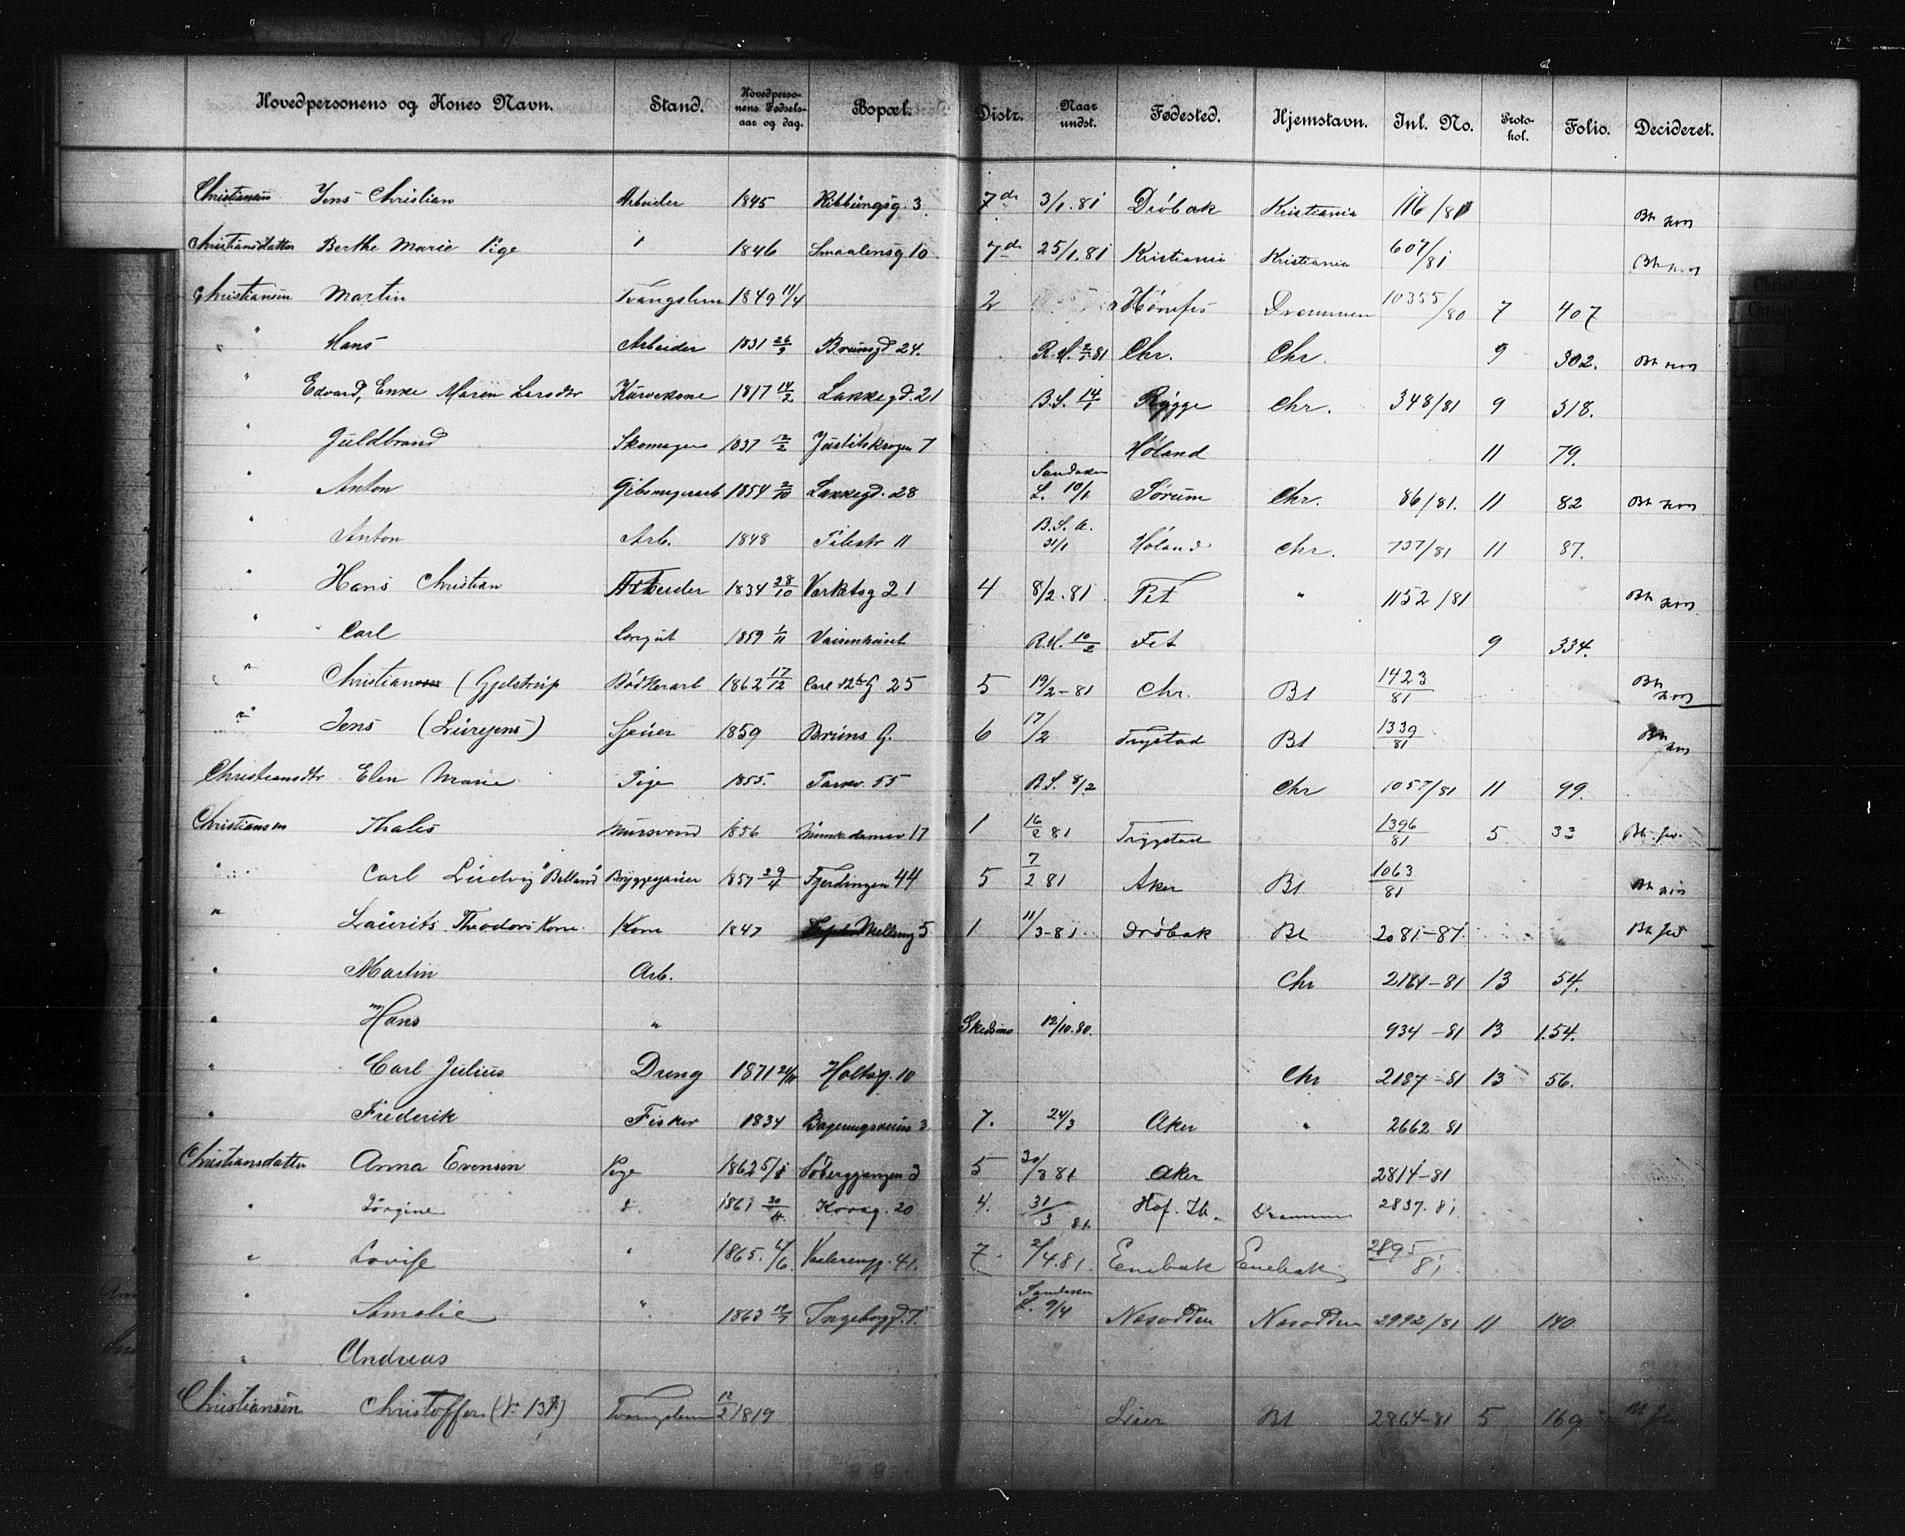 Hovedpersonens og Kones Navn. Stand. Hovedpersonens Fødselsaar og dag. Bopæl. Distr. Naar undst. Fødested. Hjemstavn. Inl. No. Protokol. Folio. Decideret.
Christiansen Jens Christian Arbeider 1845 Ribbungsg. 3 7de 3/1.81 Drøbak Kristiania 116/81
Christiansdatter Berthe Marie Pige 1846 Smaalensg 10 7de 25/1.81 Kristiania Kristiania 607/81
Christiansen Martin Tvangslem 1849 11/4 2 Drammen 10355/80 7 407
" Hans Arbeider 1831 26/9 Brunsgd 24. R.H. 81 Chr. Chr. 9 302.
" Edvard, Enke Maren Larsdtr Kurvekone 1817 14/2 Lakkegd. 21 B.S. 14/1 Rygge Chr. 348/81 9 318.
" Guldbrand Skomager 1837 12/2 Justitskrogen 7 Høland 11 79.
" Anton Gibsmagerarb 1854 2/10 Lakkegd. 28 Sandaker L. 10/1 Sørum Chr. 86/81. 11 82
" Anton Arb. 1848 Pilestr 11 B.S.A. 31/1 Høland Chr. 737/81 11 87.
" Hans Christian Arbeider 1834 28/10 Verkstsg 21 4 8/2.81 Fet " 1152/81
" Carl 1859 1/11 Vaisenhuset R.H. 10/2 Fet 9 334.
" Christian (Gjelstrup Bødkerarb 1862 17/12 Carl 12te G 25 5 19/2-81 Chr. Bt 1423/81
" Jens Sjauer 1859 Bruns G. 6 17/2 Trygstad Bt 1339/81
Christiansdtr Elen Marie Pige 1855. 55 B.S. 8/2 Chr 1057/81 11 99.
Christiansen Thales Mursvend 1856 Munkedamsv. 17 1 16/2 81 Trygstad 1396/81 5 33
" Carl Ludvig "Belland" Bryggesjauer 1857 29/4 Fjerdingen 44 5 7/2 81 Aker Bt 1063/81
" Laurits Theodors Kone. Kone 1847 Melleng 5 1 11/3-81 Drøbak Bt 2081-81.
" Martin Arb. Chr 2161-81 13 54.
" Hans " Skedsmo 12/10.80. 934-81 13 154.
" Carl Julius Dreng 1871 Holtsg. 10 Chr 2187-81 13 56.
" Frederik Fisker 1834 3 7. 24/3 Aker " 2662 81
Christiansdatter Anna Evensen Pige 1862 Løberggangen 2 5 30/3 81 Aker 2814-81
" Jørgine 1861 30/11 Korsg. 20 4. 31/3 81. Hof. Drammen 2837.81
" Lovise " 1865. 4/6 Vaalerengg. 41. 7. 2/4.81. Enebak Enebak 2895/81
" Amalie " 1863 Ingeborggd. 7 Sandaker L. 9/4 Nesodden Nesodden 2992/81 11 140.
" Andreas
Christiansen Christoffer Tvangslem 12/2 1819 Lier Bt 2864-81 5 169